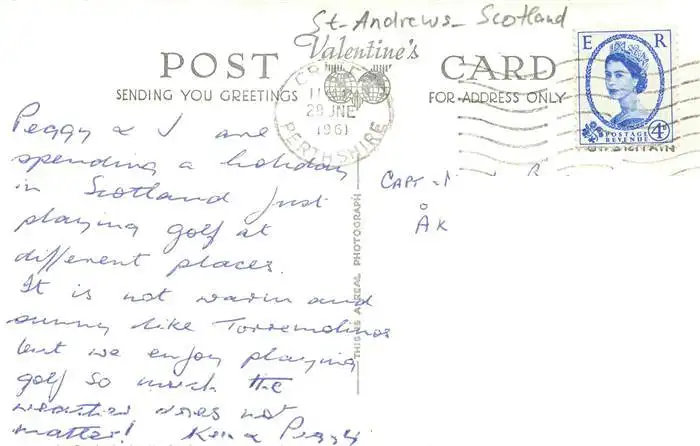 St-Andrews-Scotland
POST Valentine's CARD
SENDING YOU GREETINGS
FOR ADDRESS ONLY
28 JNE
1961
PERTHSHIRE
E R
POSTAGE
REVENUE
4D
Peggy & I are
spending a holiday
in Scotland just
playing golf at
different places.
It is not warm and
sunny like Torremolinos
but we enjoy playing
golf so much the
weather does not
matter! Ken & Peggy
THIS IS A REAL PHOTOGRAPH
CAPT
ÅK